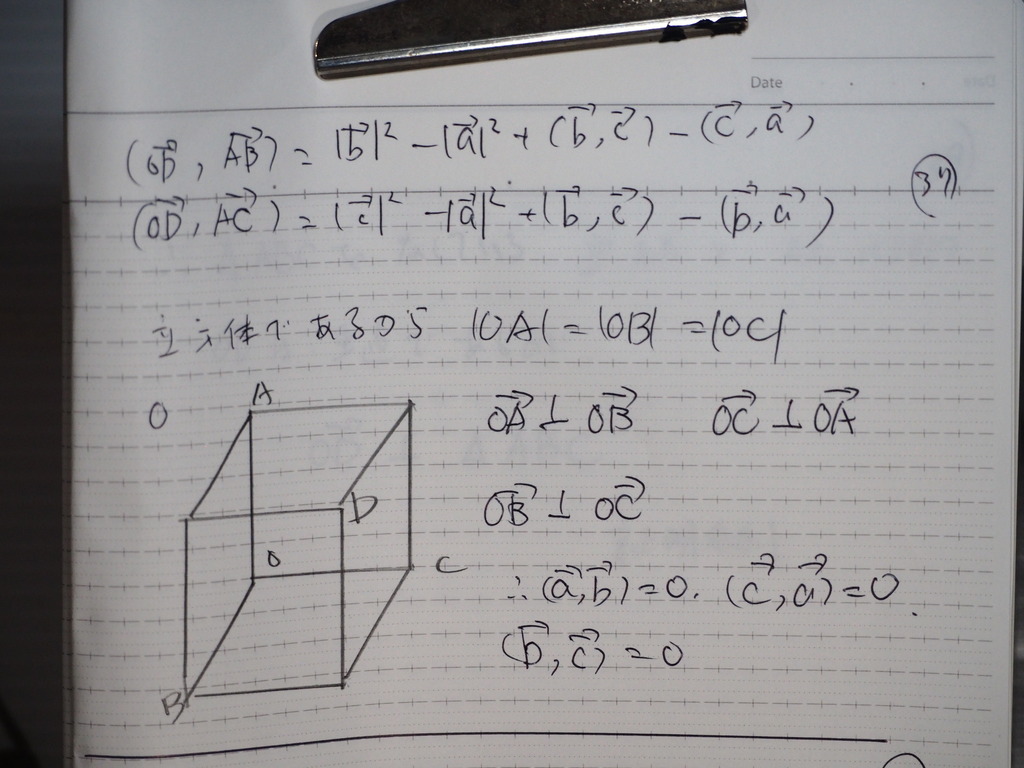 Date
(OD→, AB→) = |b→|² - |a→|² + (b→, c→) - (c→, a→)
(37)
(OD→, AC→) = |c→|² - |a→|² + (b→, c→) - (b→, a→)
立方体であるから |OA| = |OB| = |OC|
A
O
OA→ ⊥ OB→ OC→ ⊥ OA→
D
OB→ ⊥ OC→
O
C
∴ (a→, b→) = 0. (c→, a→) = 0.
(b→, c→) = 0
B